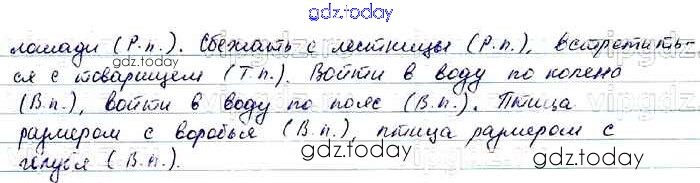 gdz.today
лошади (Р.п.). Сбежать с лестницы (Р.п.), встретить-
ся с товарищем (Т.п.). Войти в воду по колено
(В.п.), войти в воду по пояс (В.п.). Птица
размером с воробья (В.п.), птица размером с
gdz.today
голубя (В.п.).
gdz.today